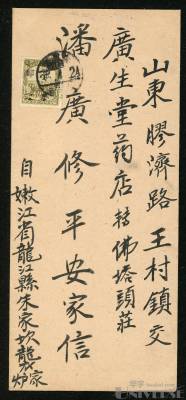 山東膠濟路王村鎮交
廣生堂药店轉佛塔頭莊
潘廣修平安家信
自嫩江省龍江縣朱家坎龍家炉
UNIVERSE